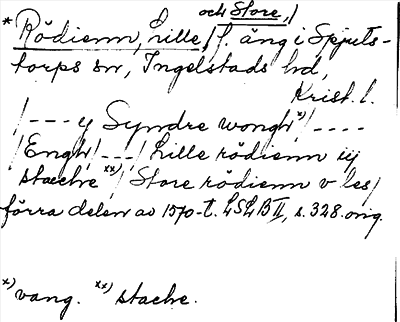 och Store,/
*Rödienn, Lille/ f. äng i Spjuts-
torps sn, Ingelstads hd,
Krist. l.
/--- y Syndre wongh *)/----
/Engh/---/ Lille rödienn iij
stache **)/ Store rödienn v les/
förra delen av 1570-t. LSLB II, s. 328. orig.
*) vang. **) stache.